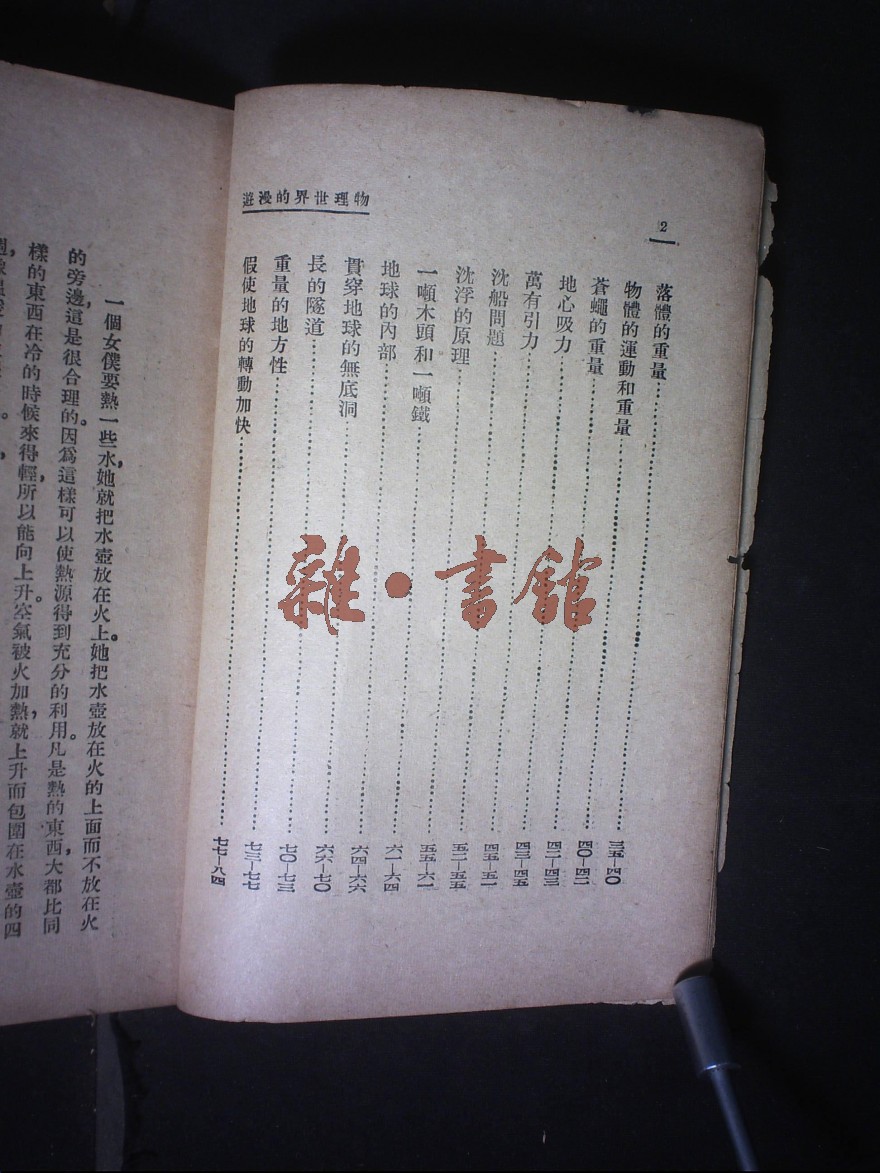 2
物理世界的漫遊
落體的重量……三五—四〇
物體的運動和重量……四〇—四二
蒼蠅的重量……四二—四三
地心吸力……四三—四五
萬有引力……四五—五一
沈船問題……五二—五五
沈浮的原理……五五—六一
一噸木頭和一噸鐵……六一—六四
地球的內部……六四—六六
貫穿地球的無底洞……六六—七〇
長的隧道……七〇—七三
重量的地方性……七三—七七
假使地球的轉動加快……七七—八四
雜·書館
一個女僕要熱一些水，她就把水壺放在火上。她把水壺放在火的上面而不放在火
的旁邊，這是很合理的。因為這樣可以使熱源得到充分的利用。凡是熱的東西，大都比同
樣的東西在冷的時候來得輕，所以能向上升。空氣被火加熱，就上升而包圍在水壺的四